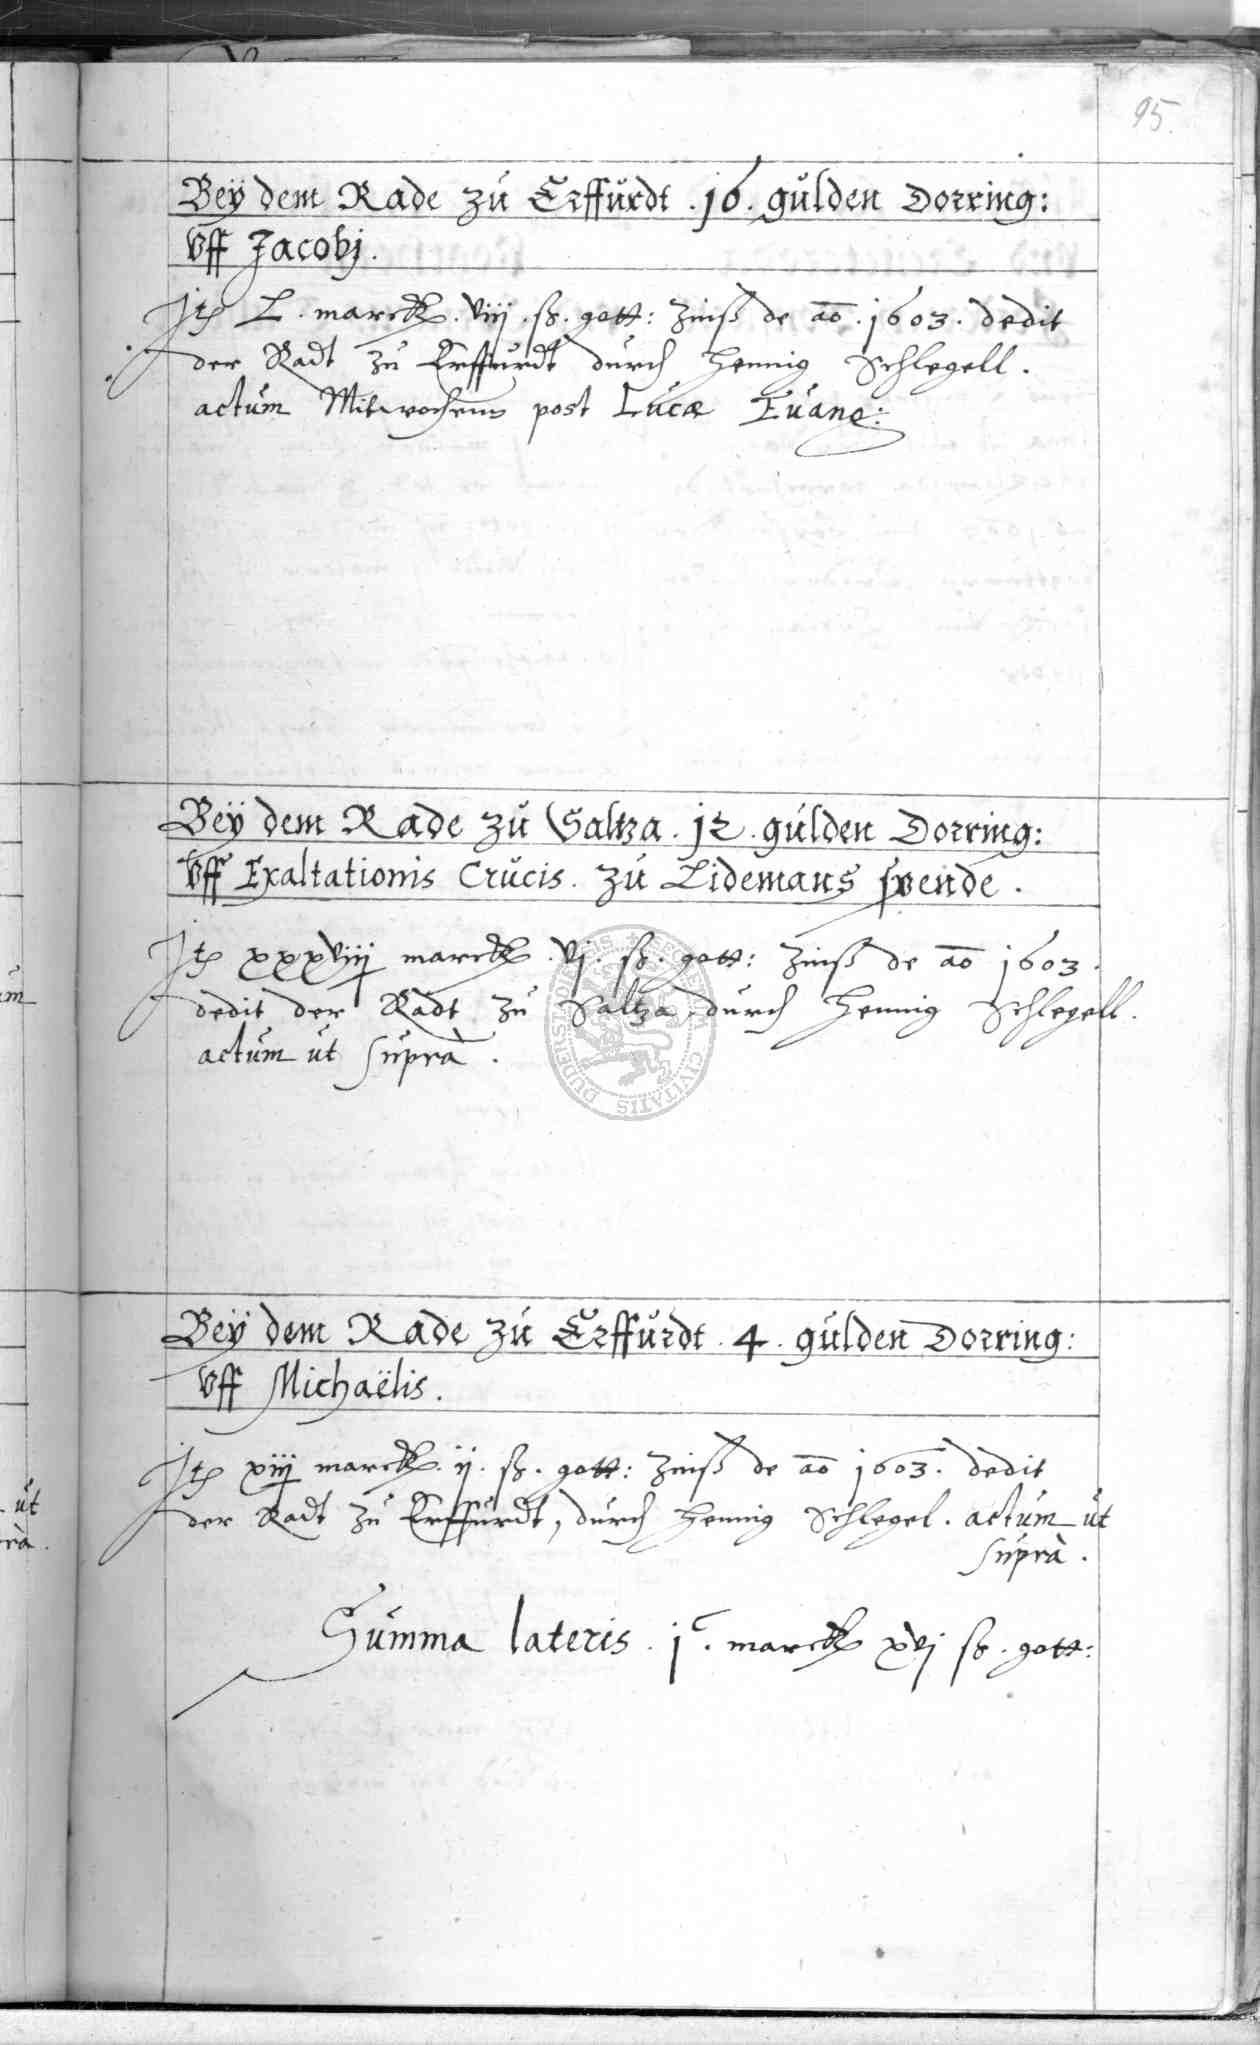 95.
Beÿ dem Rade zú Erffúrdt . 16 . gúlden Dorring:
Vff Jacobj .
Jtem L . marck . viij . ß . gott: Zinß de ao . 1603 . dedit
der Radt zú Erffúrdt dúrch Hennig Schlegell .
actúm Mitwochens post Lúcæ Eúang:
Beÿ dem Rade zú Saltza . 12 . gúlden Dorring:
Vff Exaltationis Crúcis . zú Lidemans spende .
Jtem xxxviij marck . vj . ß . gott: Zinß de ao 1603 .
dedit der Radt zú Saltza, dúrch Hennig Schlegell .
actúm út súprà .
Beÿ dem Rade zú Erffúrdt . 4 . gúlden Dorring:
Vff Michaëlis .
Jtem xiij marck . ij . ß . gott: Zinß de ao 1603 . dedit
der Radt zú Erffúrdt, dúrch Hennig Schlegel . actúm út
súprà .
Súmma lateris . jc . marck xvj ß . gott:
úm
út
rà .